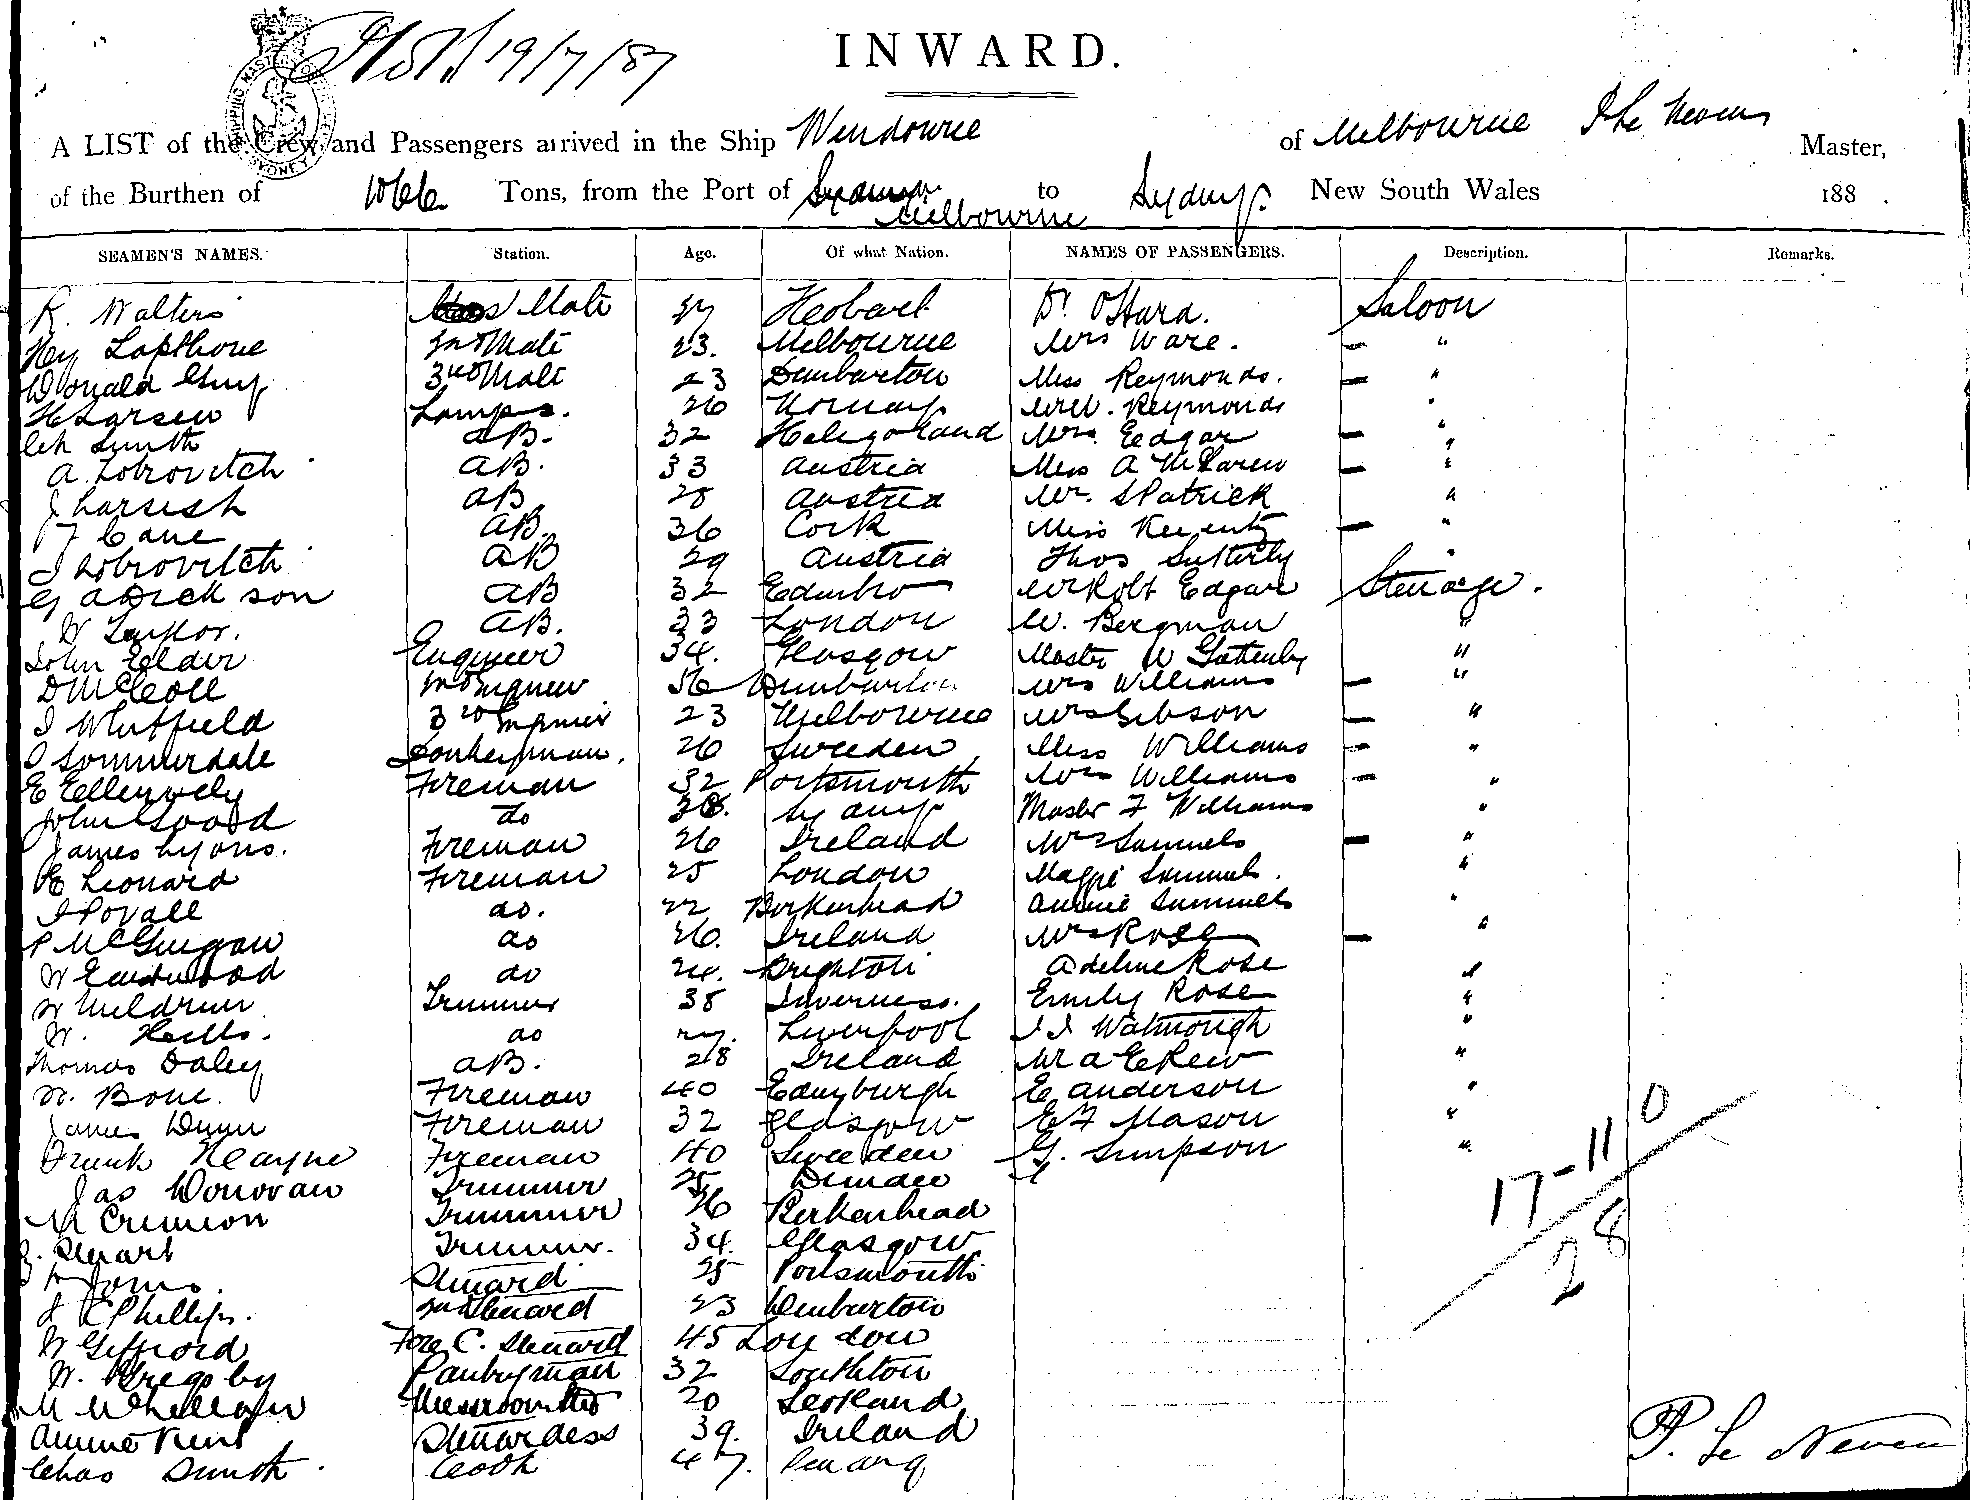 19/7/87
INWARD.
A LIST of the Crew and Passengers arrived in the Ship Wendouree of Melbourne P Le Neven Master,
of the Burthen of 1066 Tons, from the Port of Sydney Melbourne to Sydney. New South Wales 188 .
SEAMEN'S NAMES. Station. Age. Of what Nation. NAMES OF PASSENGERS. Description. Remarks.
R. Walters Mate 27 Hobart Dr O'Hara. Saloon
Hy Lapthone 2nd Mate 23. Melbourne Mrs Ware. — "
Donald 3rd Mate 23 Dumbarton Miss Reymonds. — "
H Larsen Lamps. 26 Norway Mr W. Reymonds "
Ch Smith AB. 32 Heligoland Mrs. Edgar — "
A. Lobrovitch AB. 33 Austria Miss A McLaren — "
J AB 28 Austria Mr. S Patrick "
T Cane AB. 36 Cork Miss — "
J Lobrovitch AB 29 Austria Thos Sutterby "
G A Dickson AB 32 Edinbro Mr Robt Edgar Steerage.
W Taylor. AB. 33 London W. Bergman "
John Elder Engineer 34. Glasgow Master W Gattenby "
D McColl 2nd Engineer 36 Dumbarton Mrs Williams — "
J Whitfield 3rd Engineer 23 Melbourne Mrs Gibson — "
O Sommerdale Donkeyman. 26 Sweeden Miss Williams — "
E Fireman 32 Portsmouth Mrs Williams — "
John Good do 38. Sydney Master F Williams "
James Lyons. Fireman 26 Ireland Mrs Samuels — "
E Leonard Fireman 25 London Maggie Samuels. "
J Povall do. 22 Birkenhead Annie Samuels "
P McGuigan do 26. Ireland Mrs Rose — "
W do 24. Brighton Adeline Rose "
W Meldrum Trimmer 38 Inverness. Emily Rose "
W. Hills. do 27. Liverpool J J Watmough "
Thomas Daley AB. 28 Ireland Mr A E Rew "
W. Bone. Fireman 40 Edinburgh E Anderson "
James Dunn Fireman 32 Glasgow E F Mason "
Frank Fireman 40 Sweeden G. Simpson "
Jas Donovan Trimmer 25 Dundee
M Crimeon Trimmer 26 Birkenhead 17-11 0
Stuart Trimmer. 34. Glasgow 28
Jones. Steward 25 Portsmouth
J E Phillips. 2nd Steward 23 Dumbarton
W Gifford Fore C. Steward 45 London
W. Bregsby Pantryman 32 Southton
M McLellan Messroom Std 20 Scotland
Annie Kent Stewardess 39. Ireland
Chas Smith. Cook 47. Penang
P. Le Neven